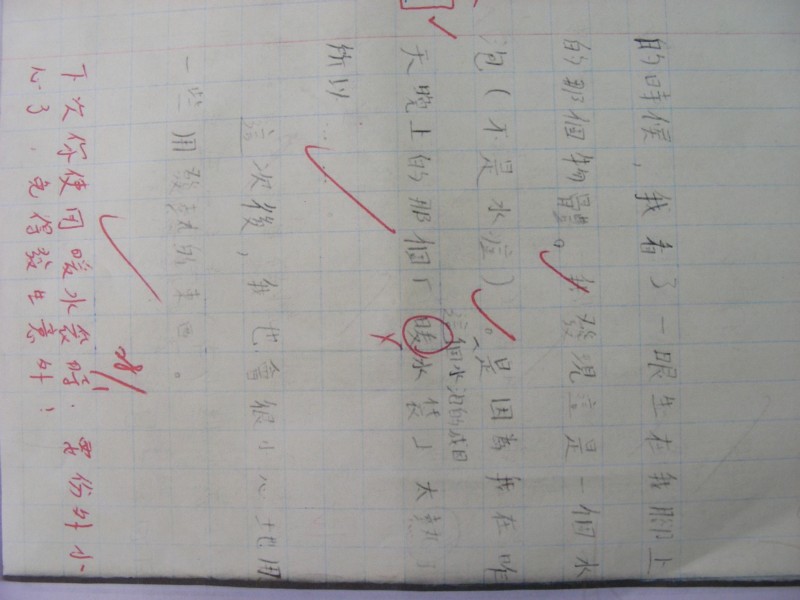 的時候，我看了一眼生在我腳上
的那個物體。我發現這是一個水
泡(不是水痘)。是因為我在昨
這個水泡的成因
天晚上的那個「暖水袋」太熱了
所以…
這次後，我也會很小心地用
一些用發熱的東西。
下次你使用暖水袋時，要份外小
心了，免得發生意外！